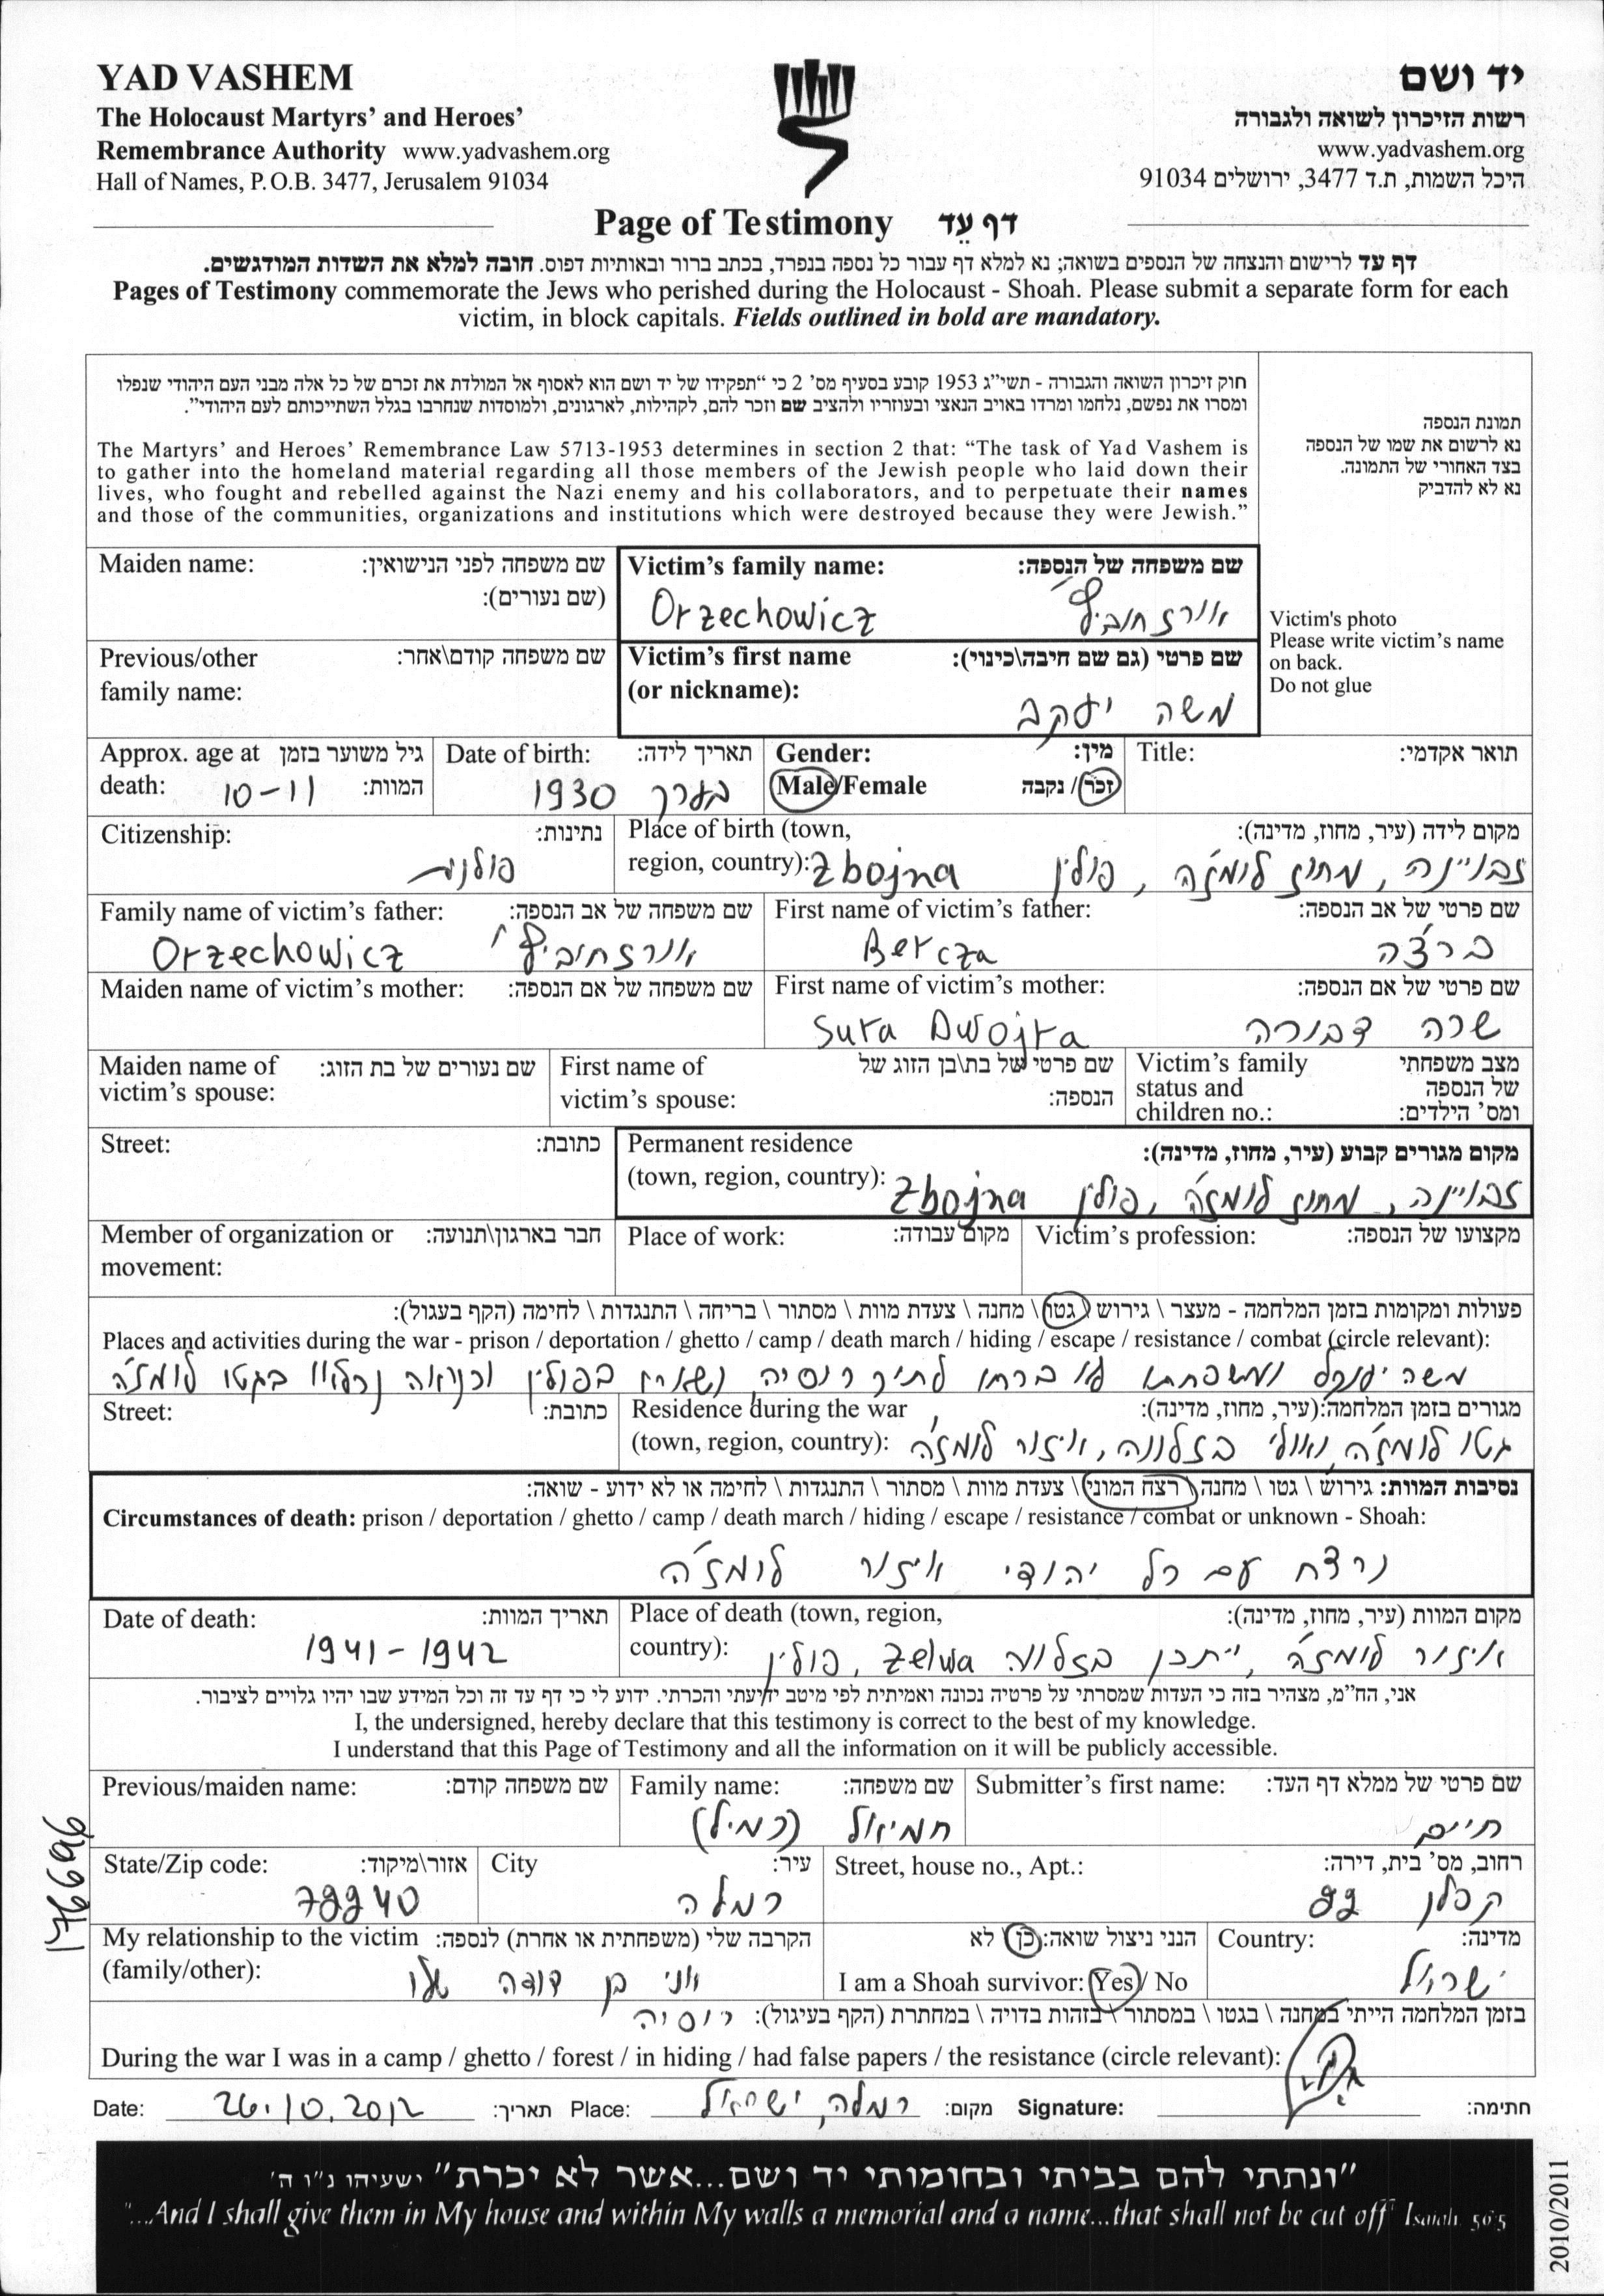 YAD VASHEM
The Holocaust Martyrs' and Heroes'
Remembrance Authority www.yadvashem.org
Hall of Names, P.O.B. 3477, Jerusalem 91034
יד ושם
רשות הזיכרון לשואה ולגבורה
www.yadvashem.org
היכל השמות, ת.ד 3477, ירושלים 91034
Page of Testimony דף עֵד
דף עד לרישום והנצחה של הנספים בשואה; נא למלא דף עבור כל נספה בנפרד, בכתב ברור ובאותיות דפוס. חובה למלא את השדות המודגשים.
Pages of Testimony commemorate the Jews who perished during the Holocaust - Shoah. Please submit a separate form for each
victim, in block capitals. Fields outlined in bold are mandatory.
חוק זיכרון השואה והגבורה - תשי"ג 1953 קובע בסעיף מס' 2 כי "תפקידו של יד ושם הוא לאסוף אל המולדת את זכרם של כל אלה מבני העם היהודי שנפלו
ומסרו את נפשם, נלחמו ומרדו באויב הנאצי ובעוזריו ולהציב שם וזכר להם, לקהילות, לארגונים, ולמוסדות שנחרבו בגלל השתייכותם לעם היהודי".
The Martyrs' and Heroes' Remembrance Law 5713-1953 determines in section 2 that: "The task of Yad Vashem is
to gather into the homeland material regarding all those members of the Jewish people who laid down their
lives, who fought and rebelled against the Nazi enemy and his collaborators, and to perpetuate their names
and those of the communities, organizations and institutions which were destroyed because they were Jewish."
תמונת הנספה
נא לרשום את שמו של הנספה
בצד האחורי של התמונה.
נא לא להדביק
Victim's photo
Please write victim's name
on back.
Do not glue
Maiden name: שם משפחה לפני הנישואין:
(שם נעורים):
Victim's family name: שם משפחה של הנספה:
Orzechowicz אורזחוביץ'
Previous/other שם משפחה קודם\אחר:
family name:
Victim's first name שם פרטי (גם שם חיבה\כינוי):
(or nickname):
משה יעקב
Approx. age at גיל משוער בזמן
death: 10-11 המוות:
Date of birth: תאריך לידה:
בערך 1930
Gender: מין:
Male/Female זכר/ נקבה
Title: תואר אקדמי:
Citizenship: נתינות:
פולנית
Place of birth (town, מקום לידה (עיר, מחוז, מדינה):
region, country): Zbojna זבויינה, מחוז לומז'ה, פולין
Family name of victim's father: שם משפחה של אב הנספה:
Orzechowicz אורזחוביץ'
First name of victim's father: שם פרטי של אב הנספה:
Bercza ברצ'ה
Maiden name of victim's mother: שם משפחה של אם הנספה:
First name of victim's mother: שם פרטי של אם הנספה:
Sura Dwojra שרה דבורה
Maiden name of שם נעורים של בת הזוג:
victim's spouse:
First name of שם פרטי של בת\בן הזוג של
victim's spouse: הנספה:
Victim's family מצב משפחתי
status and של הנספה
children no.: ומס' הילדים:
Street: כתובת:
Permanent residence מקום מגורים קבוע (עיר, מחוז, מדינה):
(town, region, country): Zbojna זבויינה, מחוז לומז'ה, פולין
Member of organization or חבר בארגון\תנועה:
movement:
Place of work: מקום עבודה:
Victim's profession: מקצועו של הנספה:
פעולות ומקומות בזמן המלחמה - מעצר \ גירוש \ גטו \ מחנה \ צעדת מוות \ מסתור \ בריחה \ התנגדות \ לחימה (הקף בעגול):
Places and activities during the war - prison / deportation / ghetto / camp / death march / hiding / escape / resistance / combat (circle relevant):
משה יענקל ומשפחתו לא ברחו לתוך רוסיה, נשארו בפולין וכנראה נכלאו בגטו לומז'ה
Street: כתובת:
Residence during the war מגורים בזמן המלחמה:(עיר, מחוז, מדינה):
(town, region, country): גטו לומז'ה, ואולי בזלווה, איזור לומז'ה
נסיבות המוות: גירוש \ גטו \ מחנה \ רצח המוני \ צעדת מוות \ מסתור \ התנגדות \ לחימה או לא ידוע - שואה:
Circumstances of death: prison / deportation / ghetto / camp / death march / hiding / escape / resistance / combat or unknown - Shoah:
נרצח עם כל יהודי איזור לומז'ה
Date of death: תאריך המוות:
1941-1942
Place of death (town, region, מקום המוות (עיר, מחוז, מדינה):
country): איזור לומז'ה, ייתכן בזלווה Zelwa, פולין
אני, הח"מ, מצהיר בזה כי העדות שמסרתי על פרטיה נכונה ואמיתית לפי מיטב ידיעתי והכרתי. ידוע לי כי דף עד זה וכל המידע שבו יהיו גלויים לציבור.
I, the undersigned, hereby declare that this testimony is correct to the best of my knowledge.
I understand that this Page of Testimony and all the information on it will be publicly accessible.
Previous/maiden name: שם משפחה קודם:
Family name: שם משפחה:
חמיאל (כמיל)
Submitter's first name: שם פרטי של ממלא דף העד:
חיים
State/Zip code: אזור\מיקוד:
City עיר:
רמלה
Street, house no., Apt.: רחוב, מס' בית, דירה:
קפלן
My relationship to the victim הקרבה שלי (משפחתית או אחרת) לנספה:
(family/other): אני בן דודה שלו
הנני ניצול שואה: כן \ לא
I am a Shoah survivor: Yes / No
Country: מדינה:
ישראל
בזמן המלחמה הייתי במחנה \ בגטו \ במסתור \ בזהות בדויה \ במחתרת (הקף בעיגול): רוסיה
During the war I was in a camp / ghetto / forest / in hiding / had false papers / the resistance (circle relevant):
Date: 26.10.2012 תאריך: Place: רמלה, ישראל מקום: Signature: חתימה:
"ונתתי להם בביתי ובחומותי יד ושם...אשר לא יכרת" ישעיהו נ"ו ה'
"...And I shall give them in My house and within My walls a memorial and a name...that shall not be cut off" Isaiah 56:5
2010/2011